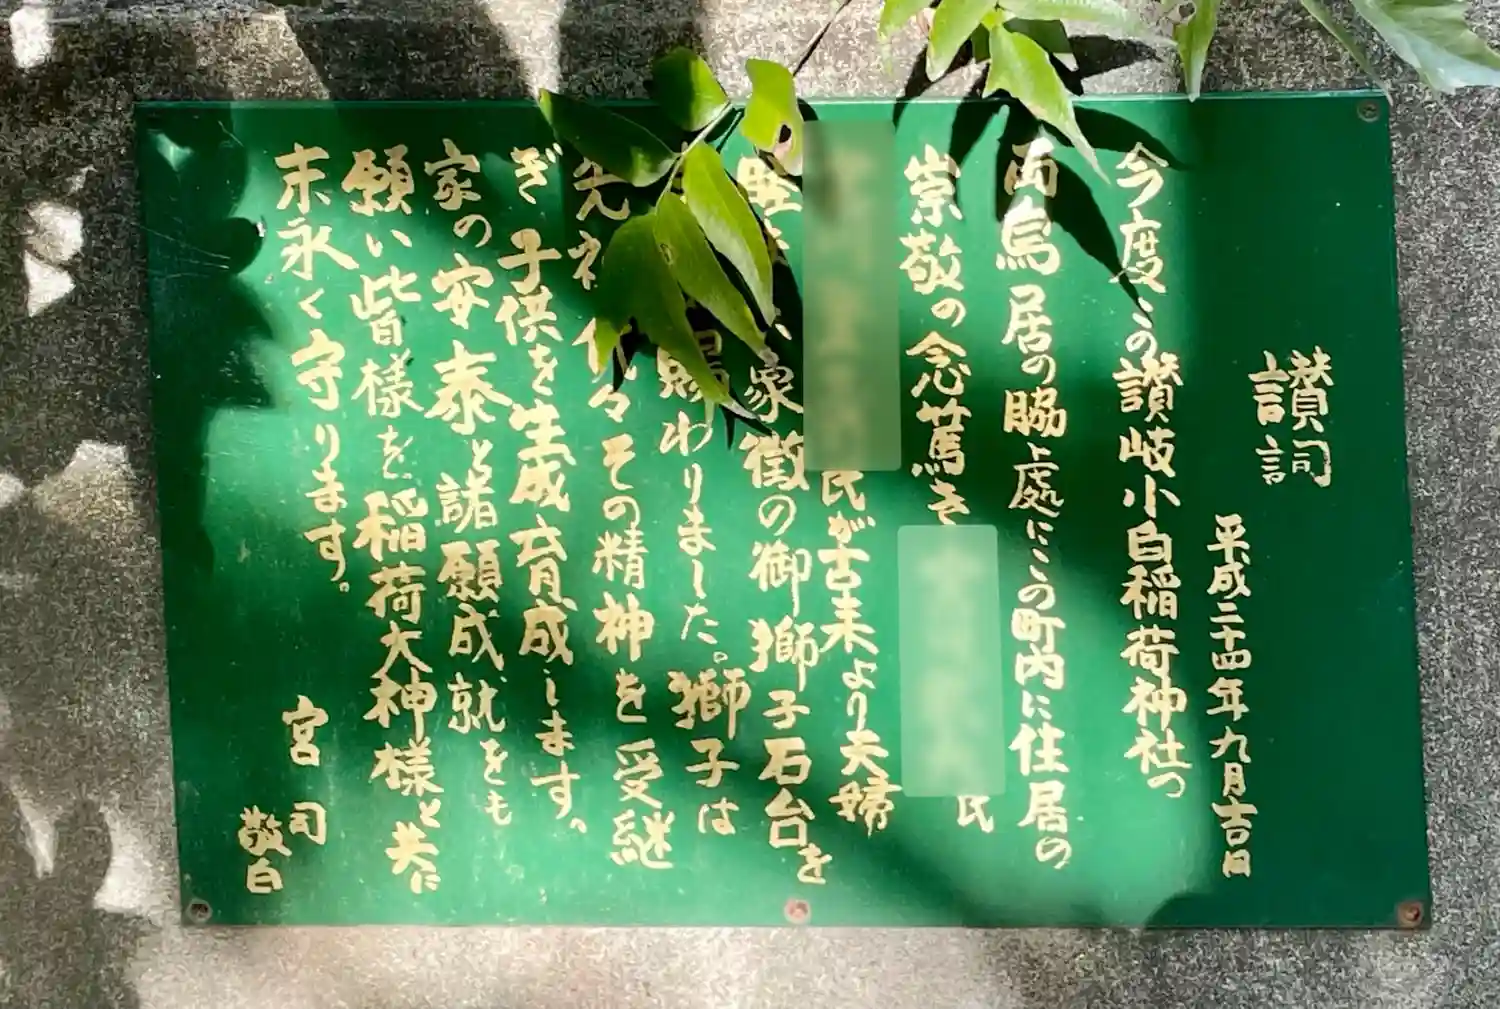 讃詞
平成二十四年九月吉日
今度この讃岐小白稲荷神社の
両鳥居の脇處にこの町内に住居の
崇敬の念篤き 氏
氏が古来より夫婦
象徴の御獅子石台を
賜わりました。獅子は
先 代々その精神を受継
ぎ 子供を生成育成します。
家の安泰と諸願成就をも
願い皆様を稲荷大神様と共に
末永く守ります。
宮司
敬白